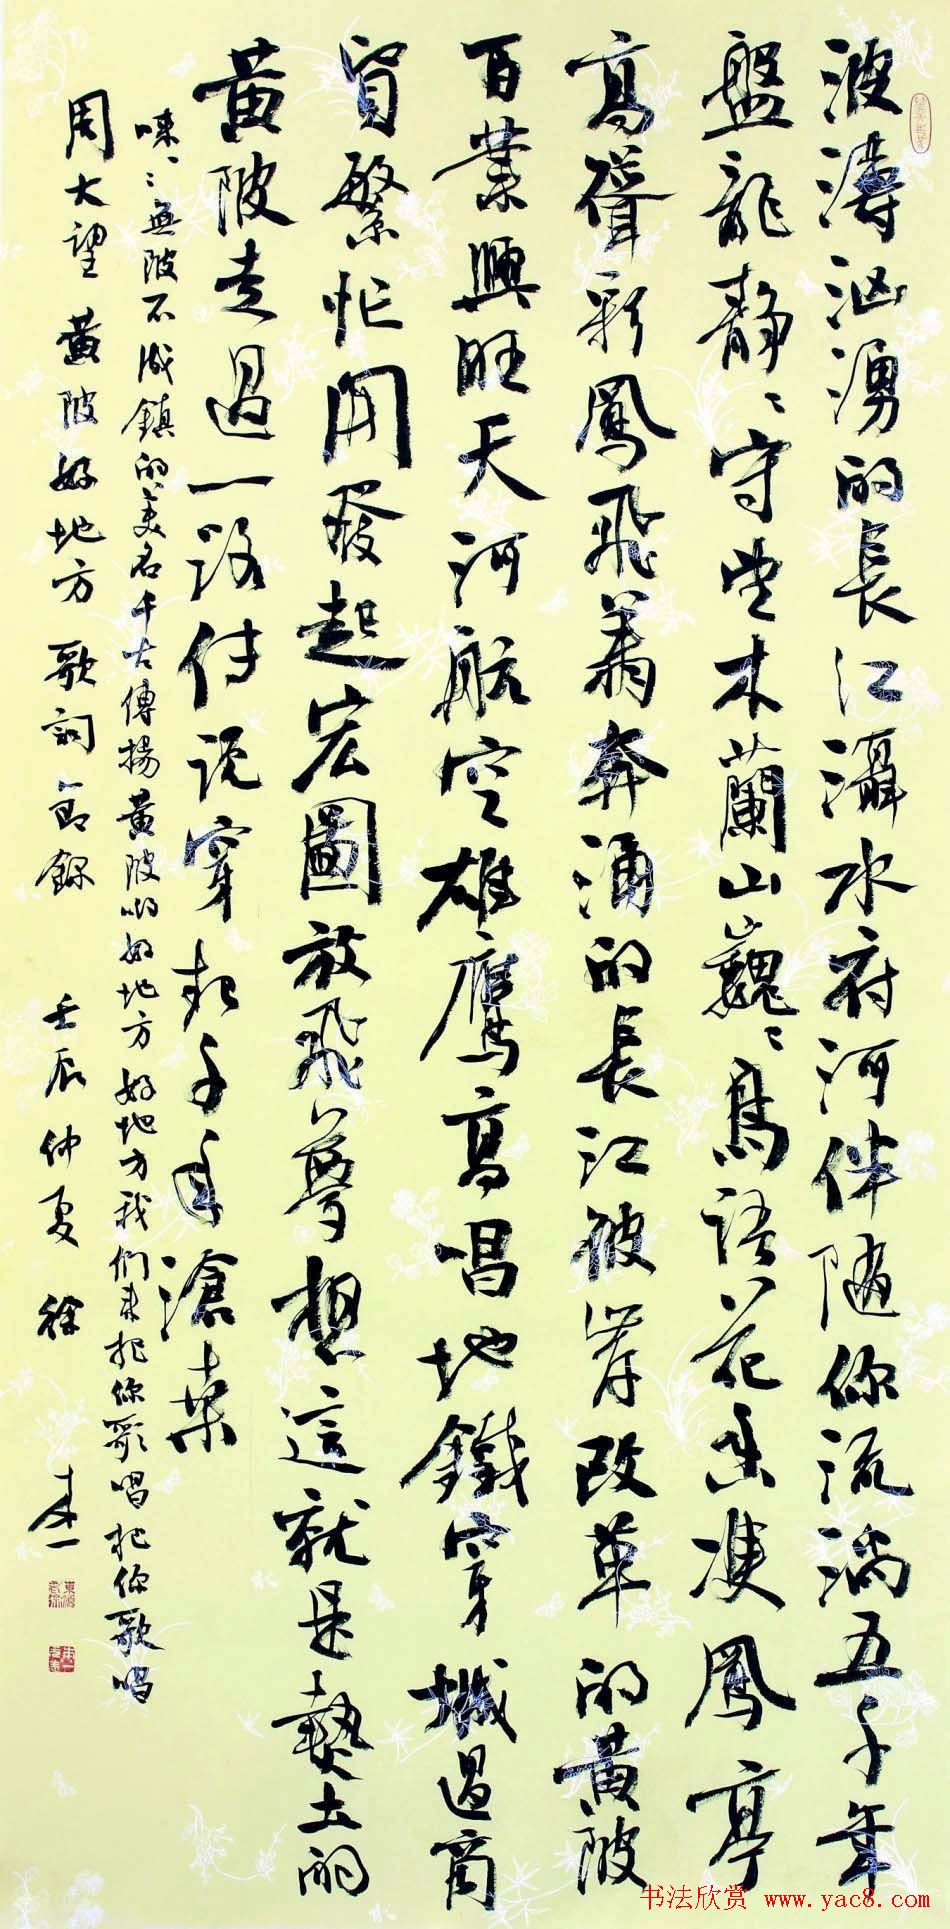 波濤洶湧的長江灄水府河伴隨你流淌五千年
盤龍靜〻守望木蘭山巍〻鳥語花香凌鳳亭
高聳彩鳳飛翥奔涌的長江彼岸改革的黃陂
百業興旺天河航空雄鷹高唱地鐵穿城過商
貿繁忙開發起宏圖放飛夢想這就是熱土的
黃陂走過一路傳說穿越千年滄桑
唻〻無陂不成鎮的美名千古傳揚黃陂喲好地方好地方我們來把你歌唱把你歌唱
周大望 黃陂好地方 歌詞節錄 壬辰仲夏 徐本一
书法欣赏 www.yac8.com